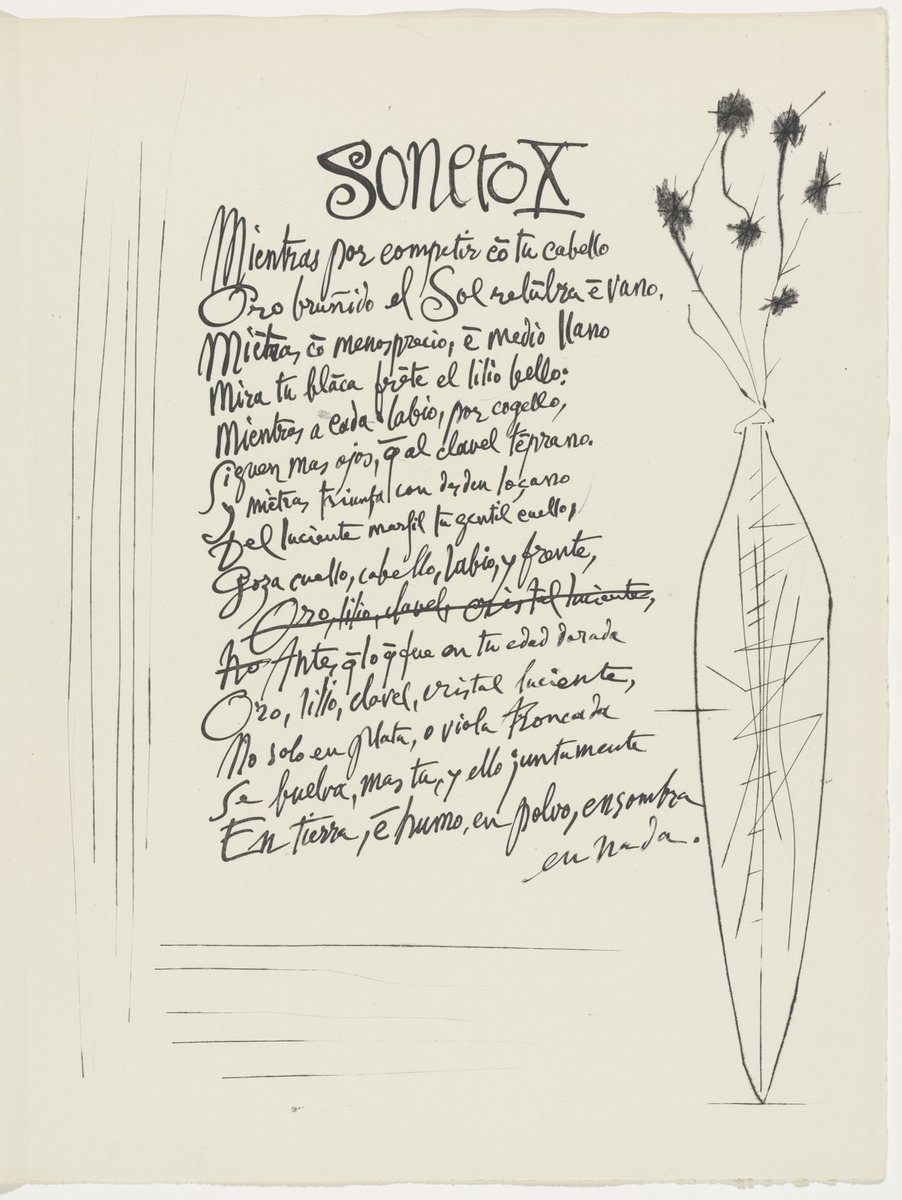 Soneto X
Mientras por competir cō tu cabello
Oro bruñido el Sol relūbra ē vano,
Miētras cō menosprecio, ē medio llano
Mira tu blāca frēte el lilio bello:
Mientras a cada labio, por cogello,
Siguen mas ojos, q̄ al clavel tēprano.
Y miētras triunfa con desden loçano
Del luciente marfil tu gentil cuello,
Goza cuello, cabello, labio, y frente,
Oro, lilio, clavel, cristal luciente,
No Antes q̄ lo q̄ fue en tu edad dorada
Oro, lilio, clavel, cristal luciente,
No solo en plata, o viola troncada
Se buelva, mas tu, y ello juntamente
En tierra, ē humo, en polvo, en sombra
en nada.